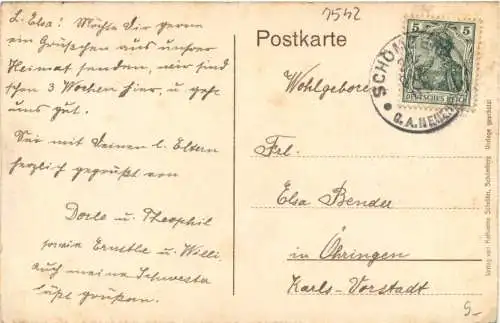 7542
L. Elsa! Möchte Dir gerne
ein Grüßchen aus unsrer
Heimat senden, wir sind
schon 3 Wochen hier, u. geht
uns gut.
Sei mit Deinen l. Eltern
herzlich gegrüßt von
Dorle u. Theophil
sowie Ernstle u. Willi,
Auch meine Schwester
läßt grüßen.
Postkarte
5 5
DEUTSCHES REICH
SCHÖM
O.A. NEUEN
Wohlgeboren
Frl.
Elsa Bender
in Öhringen
Karls-Vorstadt
5-
Verlag von Katharina Schäfer, Schömberg. Vorlage geschützt